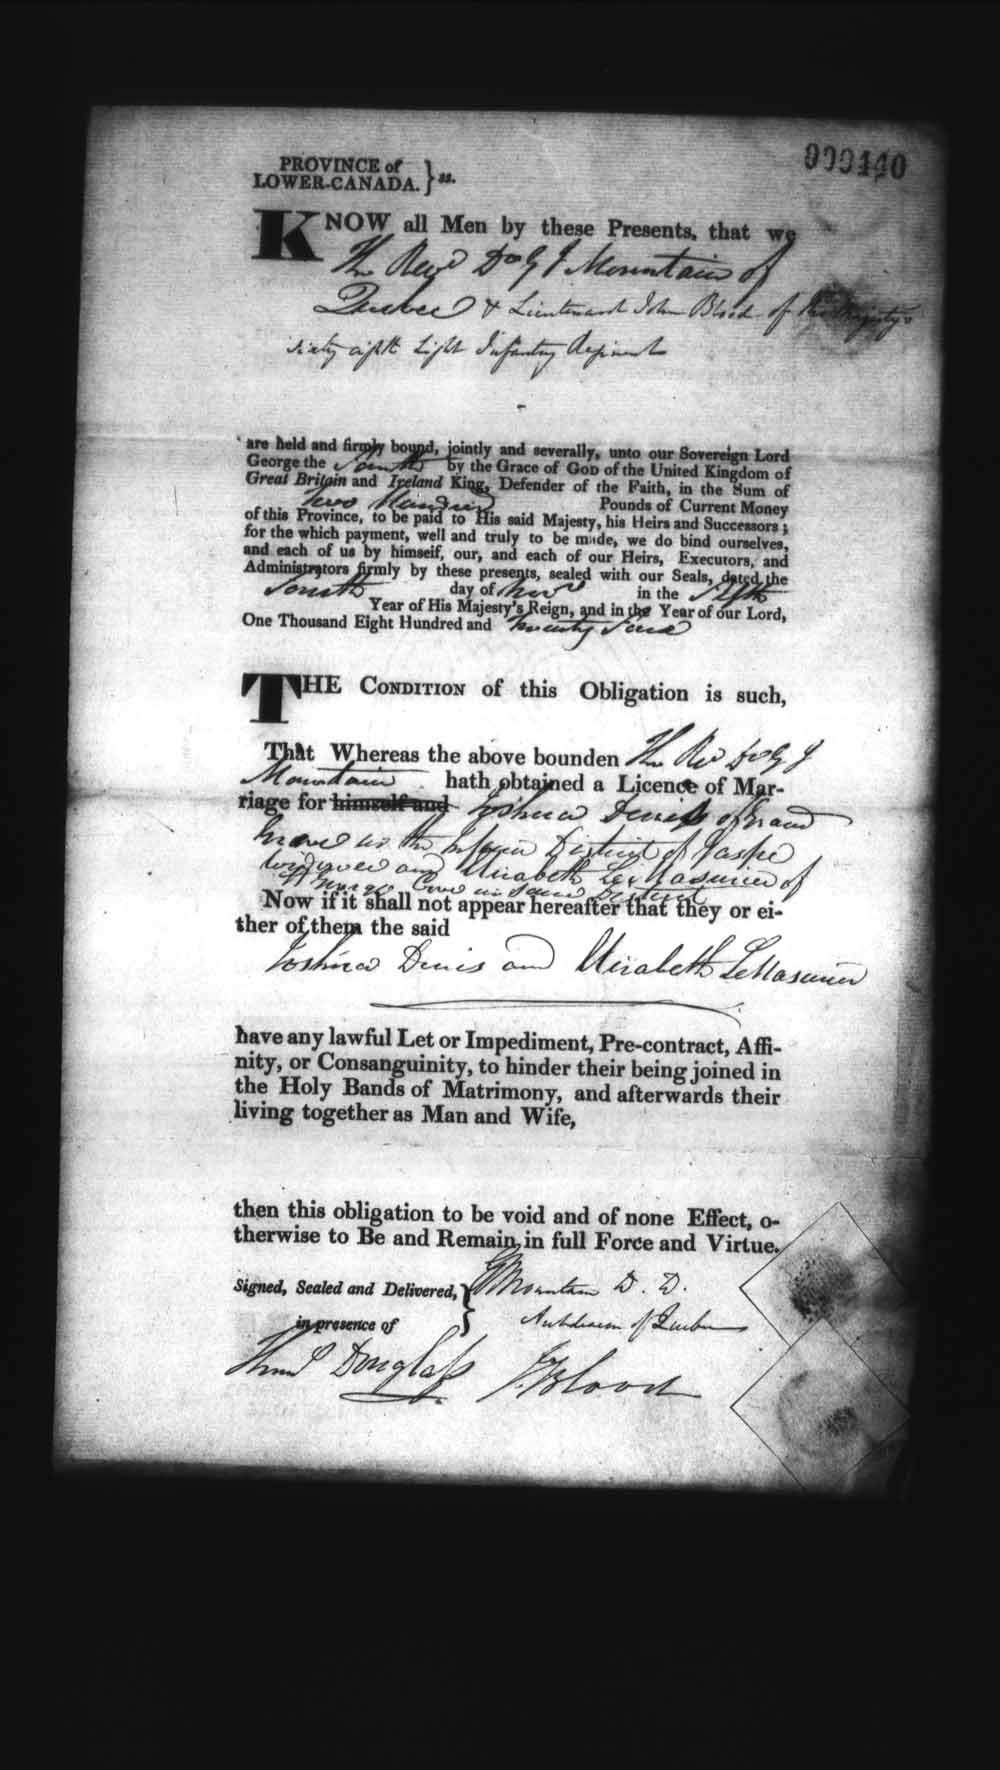 000440
PROVINCE of
LOWER-CANADA. } ss.
KNOW all Men by these Presents, that we
The Revd Dr G J Mountain of
Quebec & Lieutenant John Blood of His Majesty's
sixty eighth Light Infantry Regiment
are held and firmly bound, jointly and severally, unto our Sovereign Lord
George the Fourth by the Grace of GOD of the United Kingdom of
Great Britain and Ireland King, Defender of the Faith, in the Sum of
Two Hundred Pounds of Current Money
of this Province, to be paid to His said Majesty, his Heirs and Successors;
for the which payment, well and truly to be made, we do bind ourselves,
and each of us by himself, our, and each of our Heirs, Executors, and
Administrators firmly by these presents, sealed with our Seals, dated the
Fourth day of Novr in the Fifth
Year of His Majesty's Reign, and in the Year of our Lord,
One Thousand Eight Hundred and twenty four
THE CONDITION of this Obligation is such,
That Whereas the above bounden The Revd Dr G J
Mountain hath obtained a Licence of Mar-
riage for himself and Joshua Denis of Grand
Greve in the Inferior District of Gaspe
widower and Elizabeth LeMasurier of
Cove in same District
Now if it shall not appear hereafter that they or ei-
ther of them the said
Joshua Denis and Elizabeth LeMasurier
have any lawful Let or Impediment, Pre-contract, Affi-
nity, or Consanguinity, to hinder their being joined in
the Holy Bands of Matrimony, and afterwards their
living together as Man and Wife,
then this obligation to be void and of none Effect, o-
therwise to Be and Remain in full Force and Virtue.
Signed, Sealed and Delivered, } G J Mountain D. D.
in presence of Archdeacon of Quebec
Douglass J. Blood